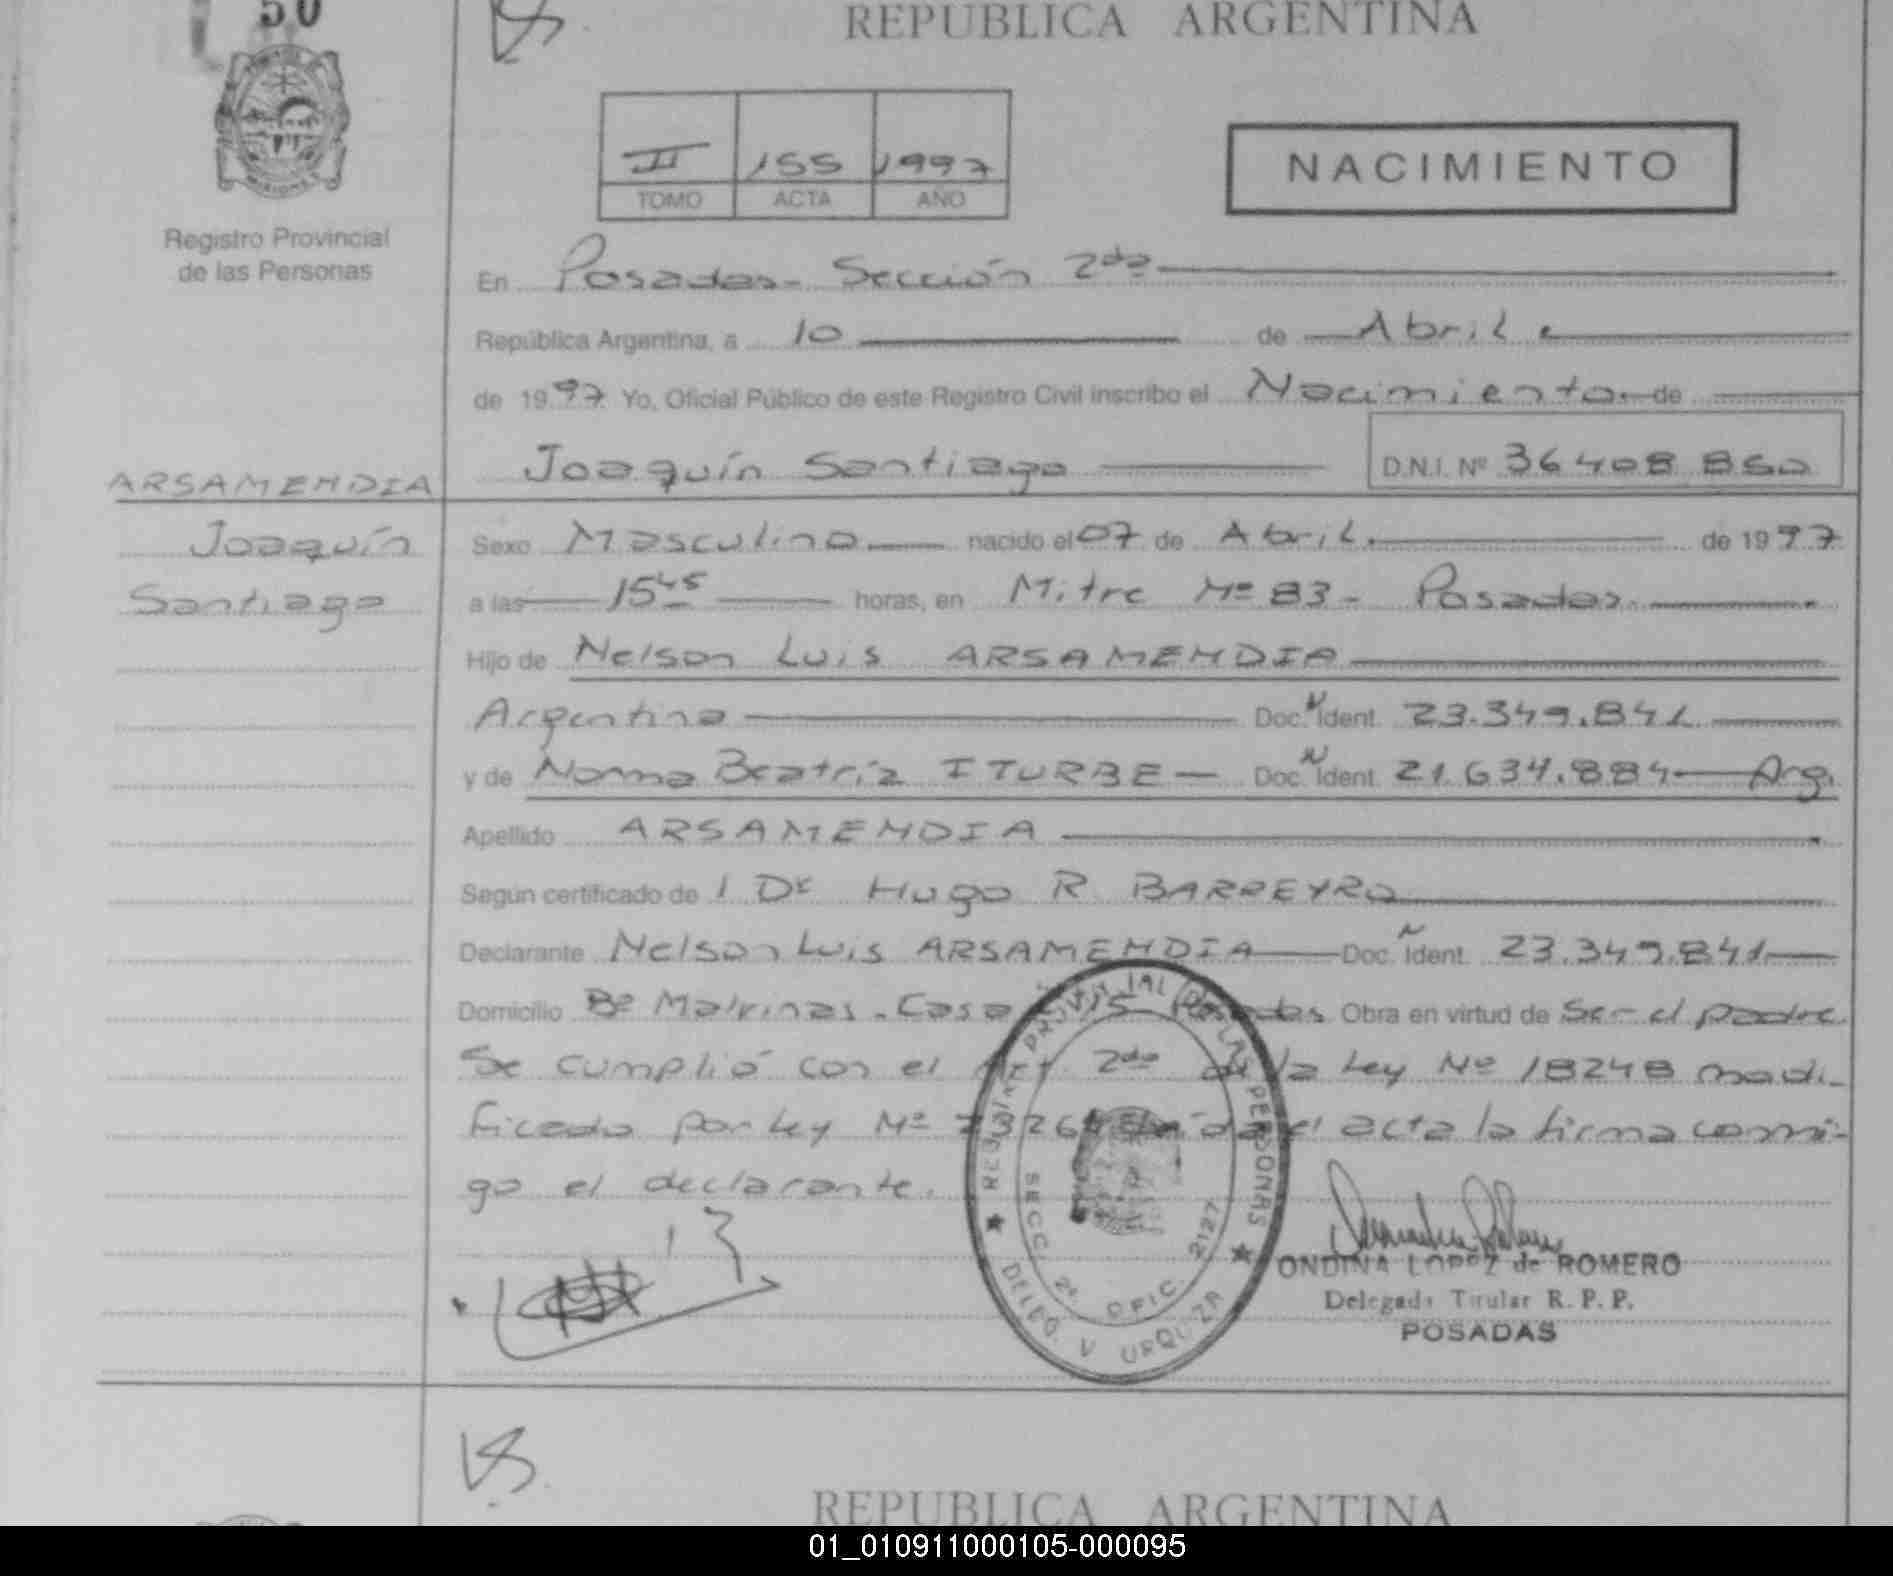 50
REPUBLICA ARGENTINA
II 155 1997
TOMO ACTA AÑO
NACIMIENTO
MISIONES
Registro Provincial
de las Personas
En Posadas- Sección 2da
República Argentina, a 10 de Abril.
de 1997 Yo, Oficial Público de este Registro Civil inscribo el Nacimiento de
Joaquín Santiago D.N.I. Nº 36408850
ARSAMENDIA
Joaquín
Santiago
Sexo Masculino nacido el 07 de Abril. de 1997
a las 15 45 horas, en Mitre Nº 83- Posadas.
Hijo de Nelson Luis ARSAMENDIA
Argentina Doc. N Ident. 23.349.841
y de Norma Beatriz ITURBE Doc. N Ident. 21.634.884 Arg.
Apellido ARSAMENDIA
Según certificado de 1 Dr Hugo R BARREYRO
Declarante Nelson Luis ARSAMENDIA Doc. N Ident. 23.349.841
Domicilio Bº Malvinas - Casa 15 Posadas Obra en virtud de Ser el padre
Se cumplió con el Art. 2do de la Ley Nº 18248 modi-
ficado por Ley Nº 23264 Leída el acta la firma conmi-
go el declarante.
REGISTRO PROVINCIAL DE LAS PERSONAS
SECC. 2º OFIC. 2127
DELEG. V URQUIZA
ONDINA LOPEZ de ROMERO
Delegada Titular R. P. P.
POSADAS
REPUBLICA ARGENTINA
01_010911000105-000095